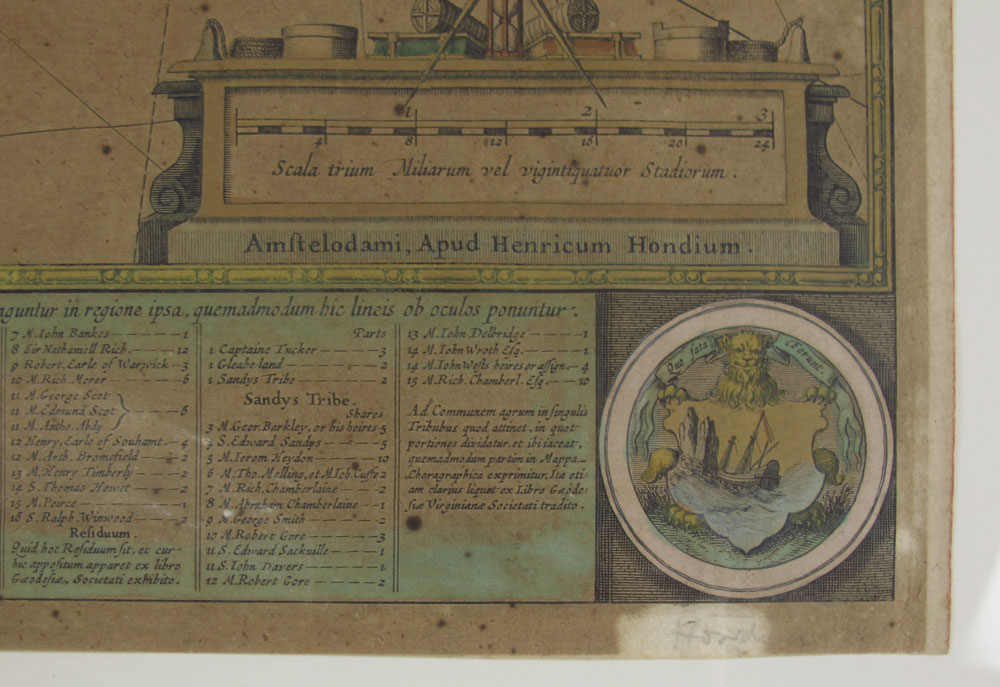 1 2 3
4 8 12 16 20 24
Scala trium Miliarum vel vigintiquatuor Stadiorum.
Amſtelodami, Apud Henricum Hondium.
guntur in regione ipsa, quemadmodum hic lineis ob oculos ponuntur.
7 M. Iohn Bankes 1
8 Sir Nathaniell Rich. 12
9 Robert, Earle of Warwick 3
10 M. Rich. Morer 6
11 M. George Scot
11 M. Edmund Scot 6
11 M. Antho. Abdy
12 Henry, Earle of Southamt. 4
12 M. Arth. Bromefield 2
13 M. Henry Timberly 2
14 S. Thomas Hewet 2
15 M. Peirce 1
16 S. Ralph Winwood 2
Reſiduum.
Quid hoc Reſiduum ſit, et cur
hic appoſitum apparet ex libro
Gæodeſiæ, Societati exhibito.
Parts
1 Captaine Tucker 3
1 Gleabe land 2
1 Sandys Tribe 2
Sandys Tribe.
Shares
3 M. Geor. Barkley, or his heires 5
4 S. Edward Sandys 5
5 M. Ierom Heydon 10
6 M. Tho. Melling, et M. Ioh. Cuffe 2
7 M. Rich. Chamberlaine 2
8 M. Abraham Chamberlaine 1
9 M. George Smith 2
10 M. Robert Gore 3
11 S. Edward Sackuille 1
11 S. Iohn Dauers 1
12 M. Robert Gore 2
13 M. Iohn Delbridge 1
14 M. Iohn Wroth Eſq. 1
14 M. Iohn Weſts heires or aſſign. 4
15 M. Rich. Chamberl. Eſq. 10
Ad Communem agrum in ſingulis
Tribubus quod attinet, in quot
portiones dividatur, et ibi jaceat,
quemadmodum partim in Mappa
Chorographica exprimitur, Ita eti-
am clarius liquet ex Libro Gæode-
ſiæ Virginianæ Societati tradito.
Quo fata ferunt.